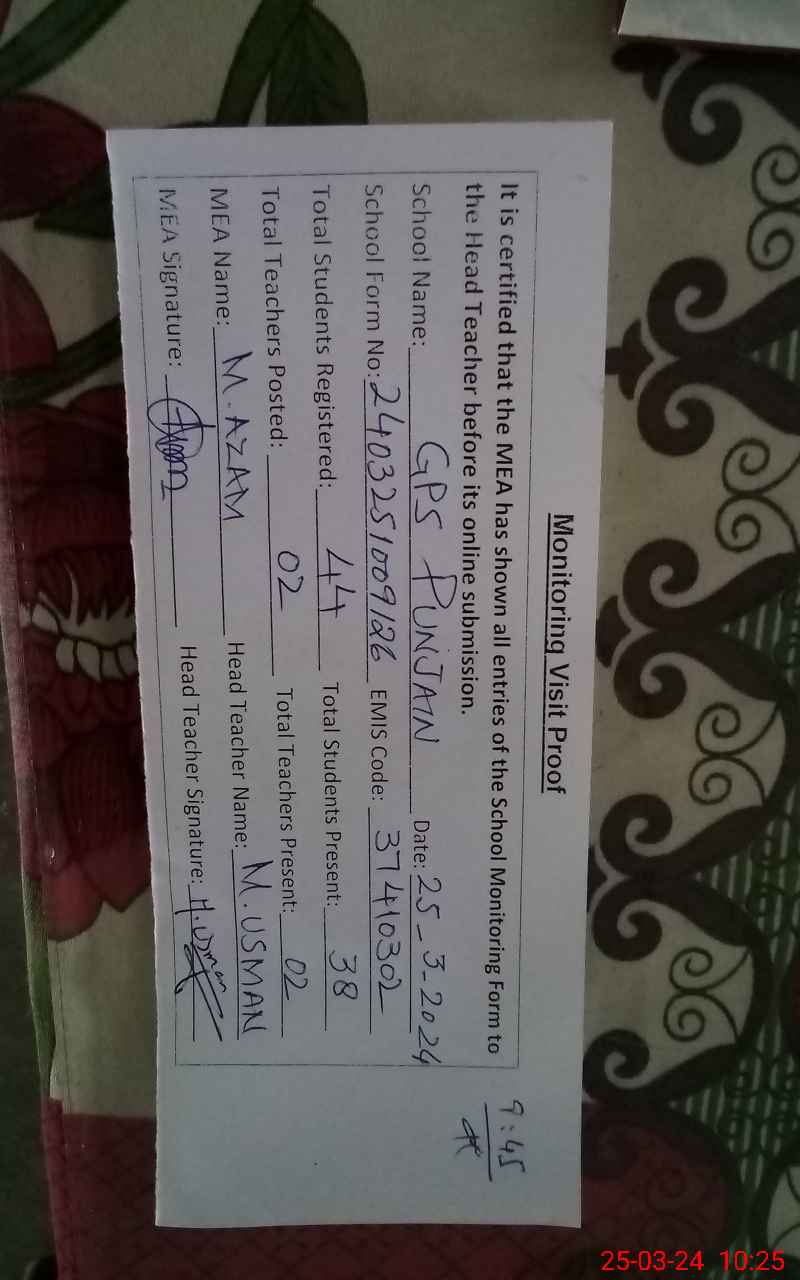 Monitoring Visit Proof
It is certified that the MEA has shown all entries of the School Monitoring Form to
the Head Teacher before its online submission.
School Name: GPS PUNJAIN Date: 25-3-2024
School Form No: 2403251009126 EMIS Code: 37410302
Total Students Registered: 44 Total Students Present: 38
Total Teachers Posted: 02 Total Teachers Present: 02
MEA Name: M. AZAM Head Teacher Name: M. USMAN
MEA Signature: Head Teacher Signature: M. Usman
9:45
25-03-24 10:25